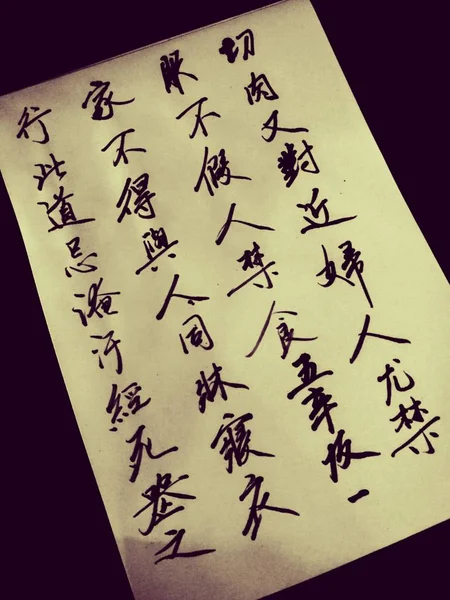 行此道忌淹汙經死喪之
家不得與人同牀寢衣
服不假人禁食五辛及一
切肉又對近婦人尤禁